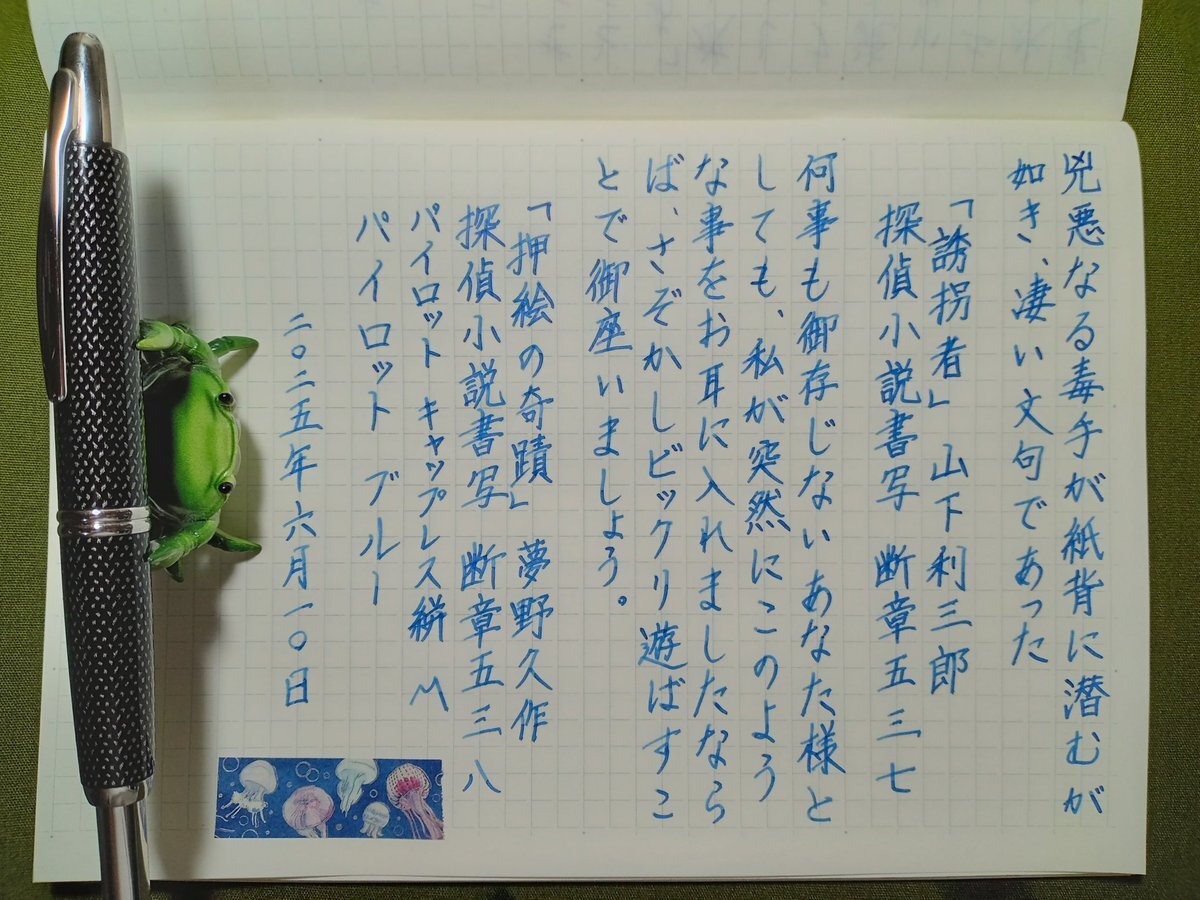 兇悪なる毒手が紙背に潜むが
如き、凄い文句であった
「誘拐者」 山下利三郎
探偵小説書写 断章五三七
何事も御存じないあなた様と
しても、私が突然にこのよう
な事をお耳に入れましたなら
ば、さぞかしビックリ遊ばすこ
とで御座いましょう。
「押絵の奇蹟」 夢野久作
探偵小説書写 断章五三八
パイロット キャップレス絣 M
パイロット ブルー
二〇二五年六月一〇日